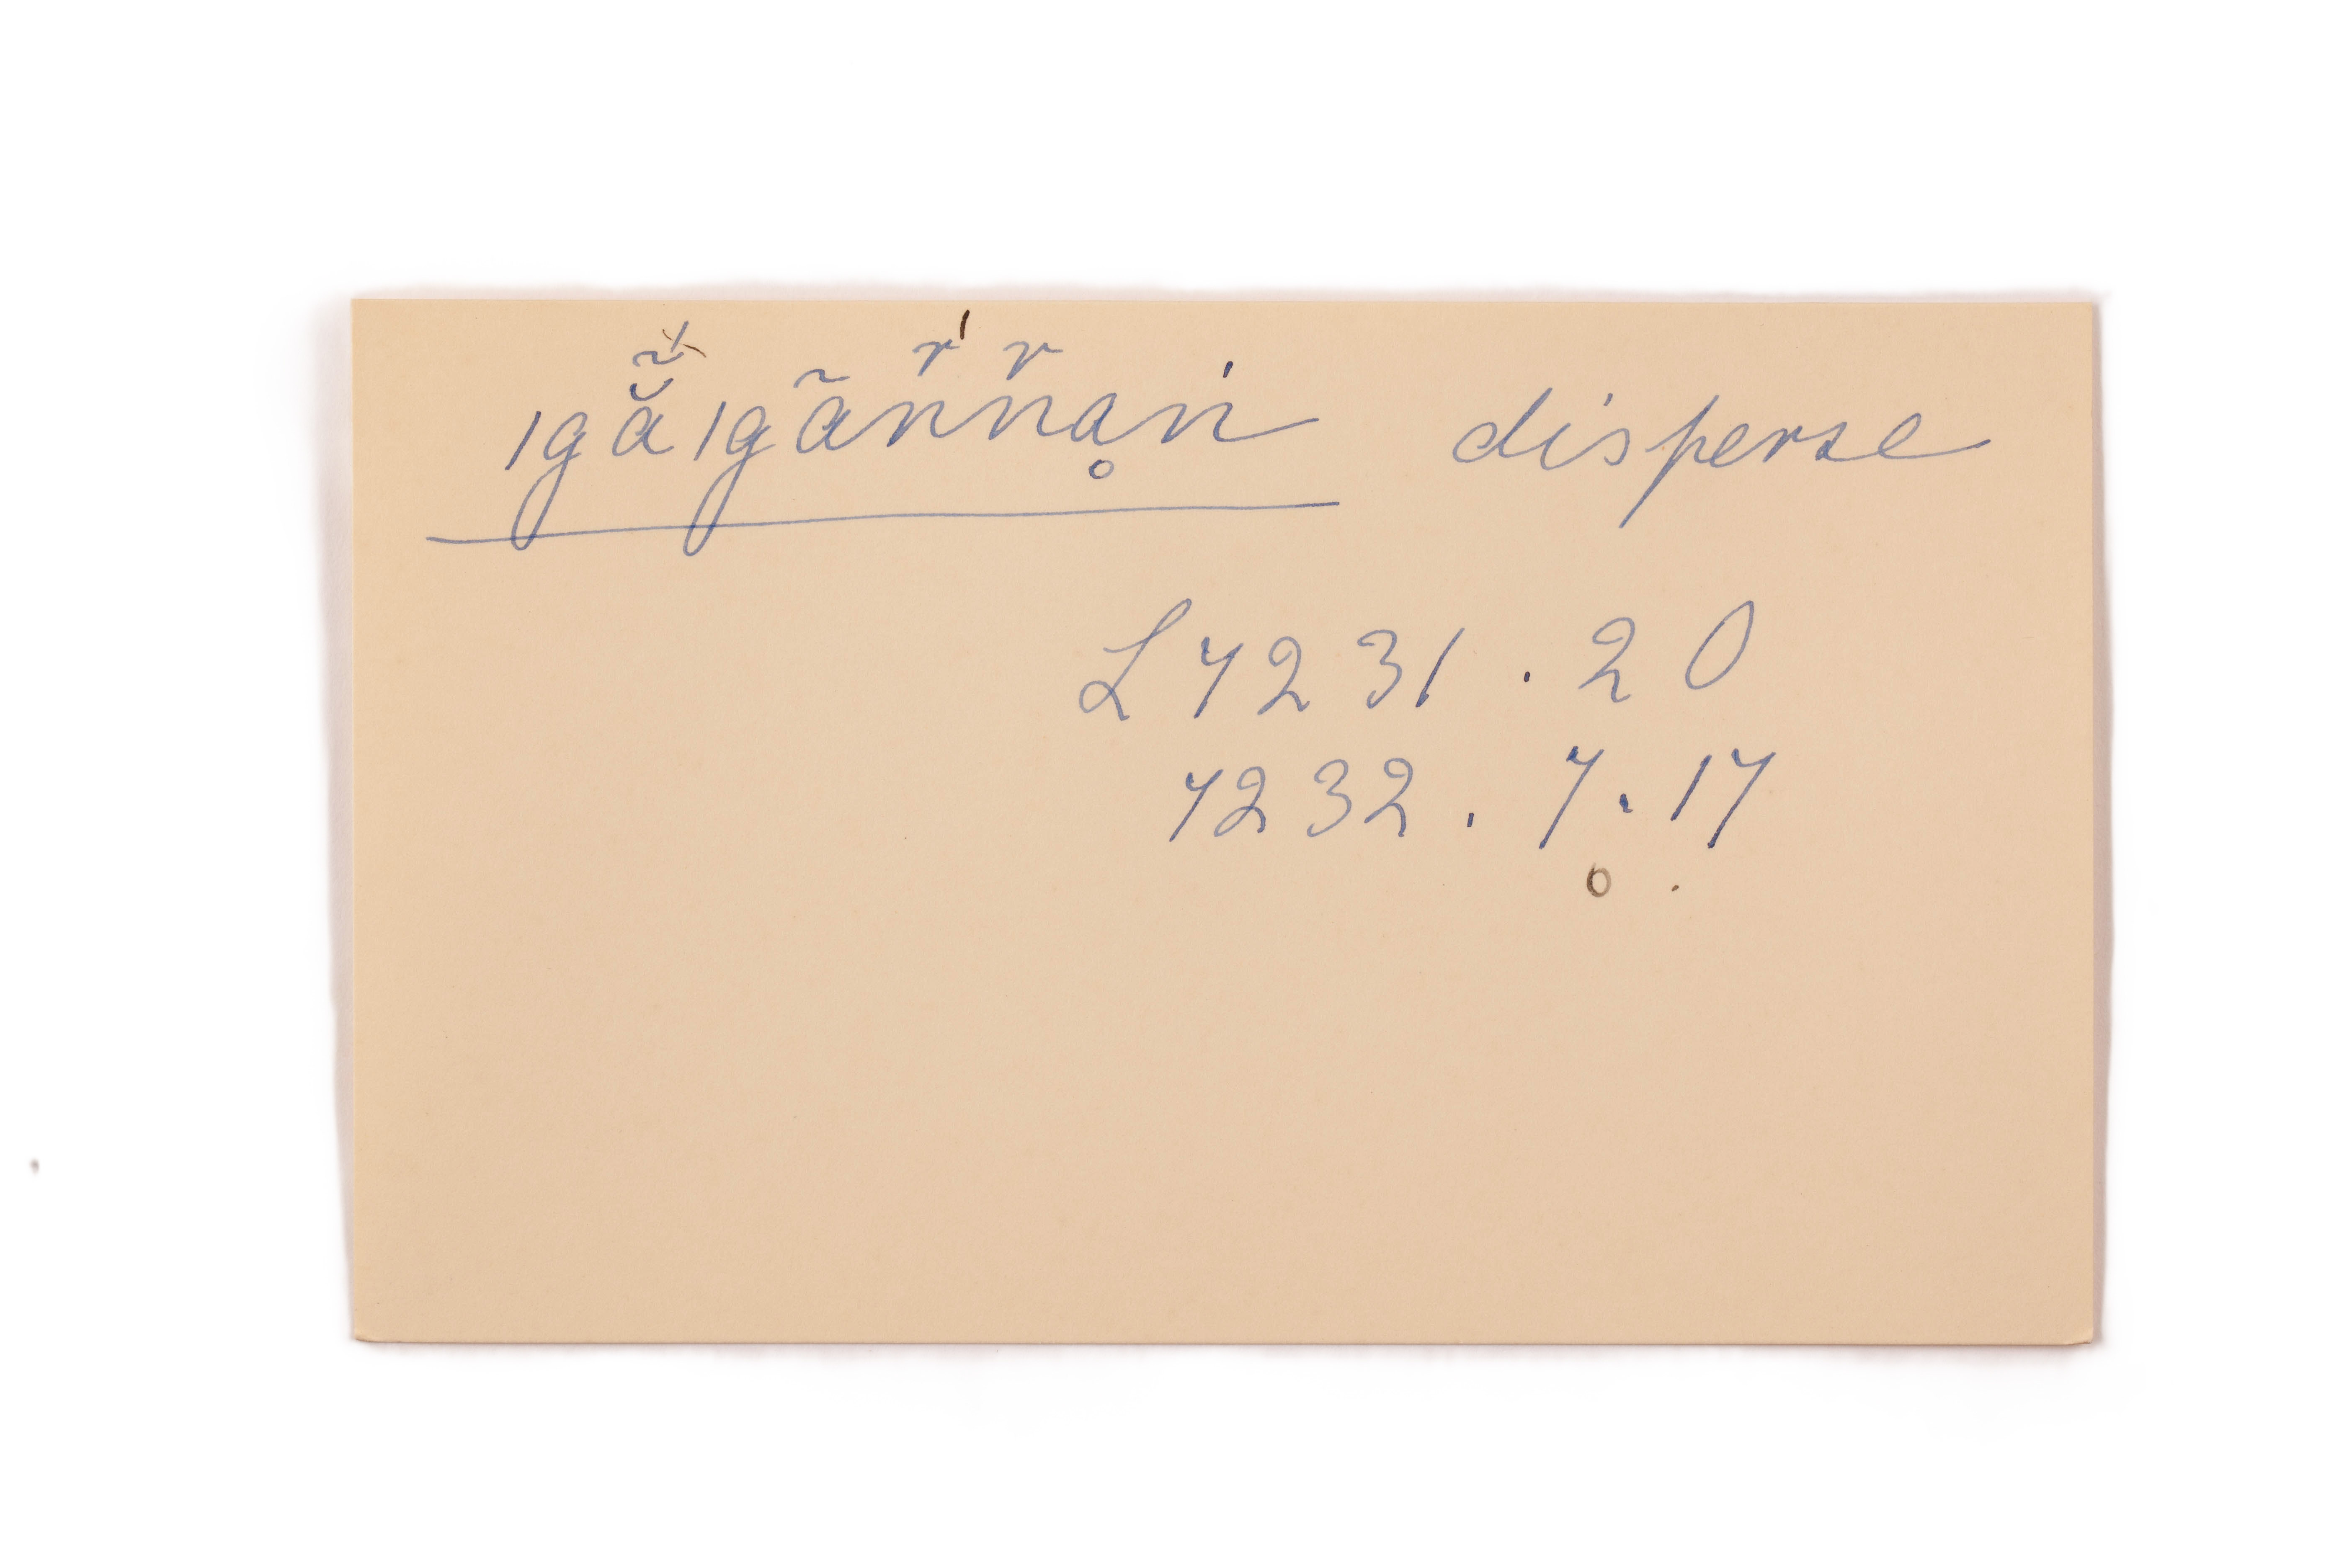 /gã̆/gãnnan̥i disperse
L 7231 . 20
7232 . 7 . 17